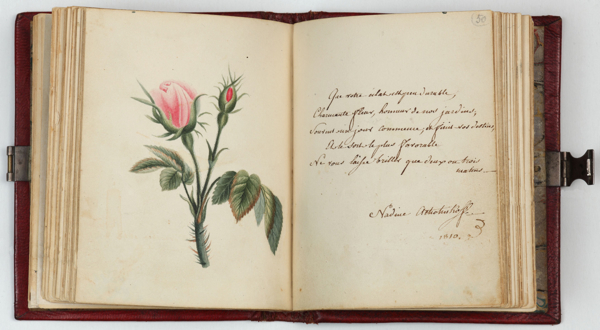 30
Que votre éclat est peu durable,
Charmante fleur, honneur de nos jardins,
Souvent un jour commence, & finit vos destins,
Et le sort le plus favorable
Ne vous laisse briller que deux ou trois
matins
Nadine
1810.